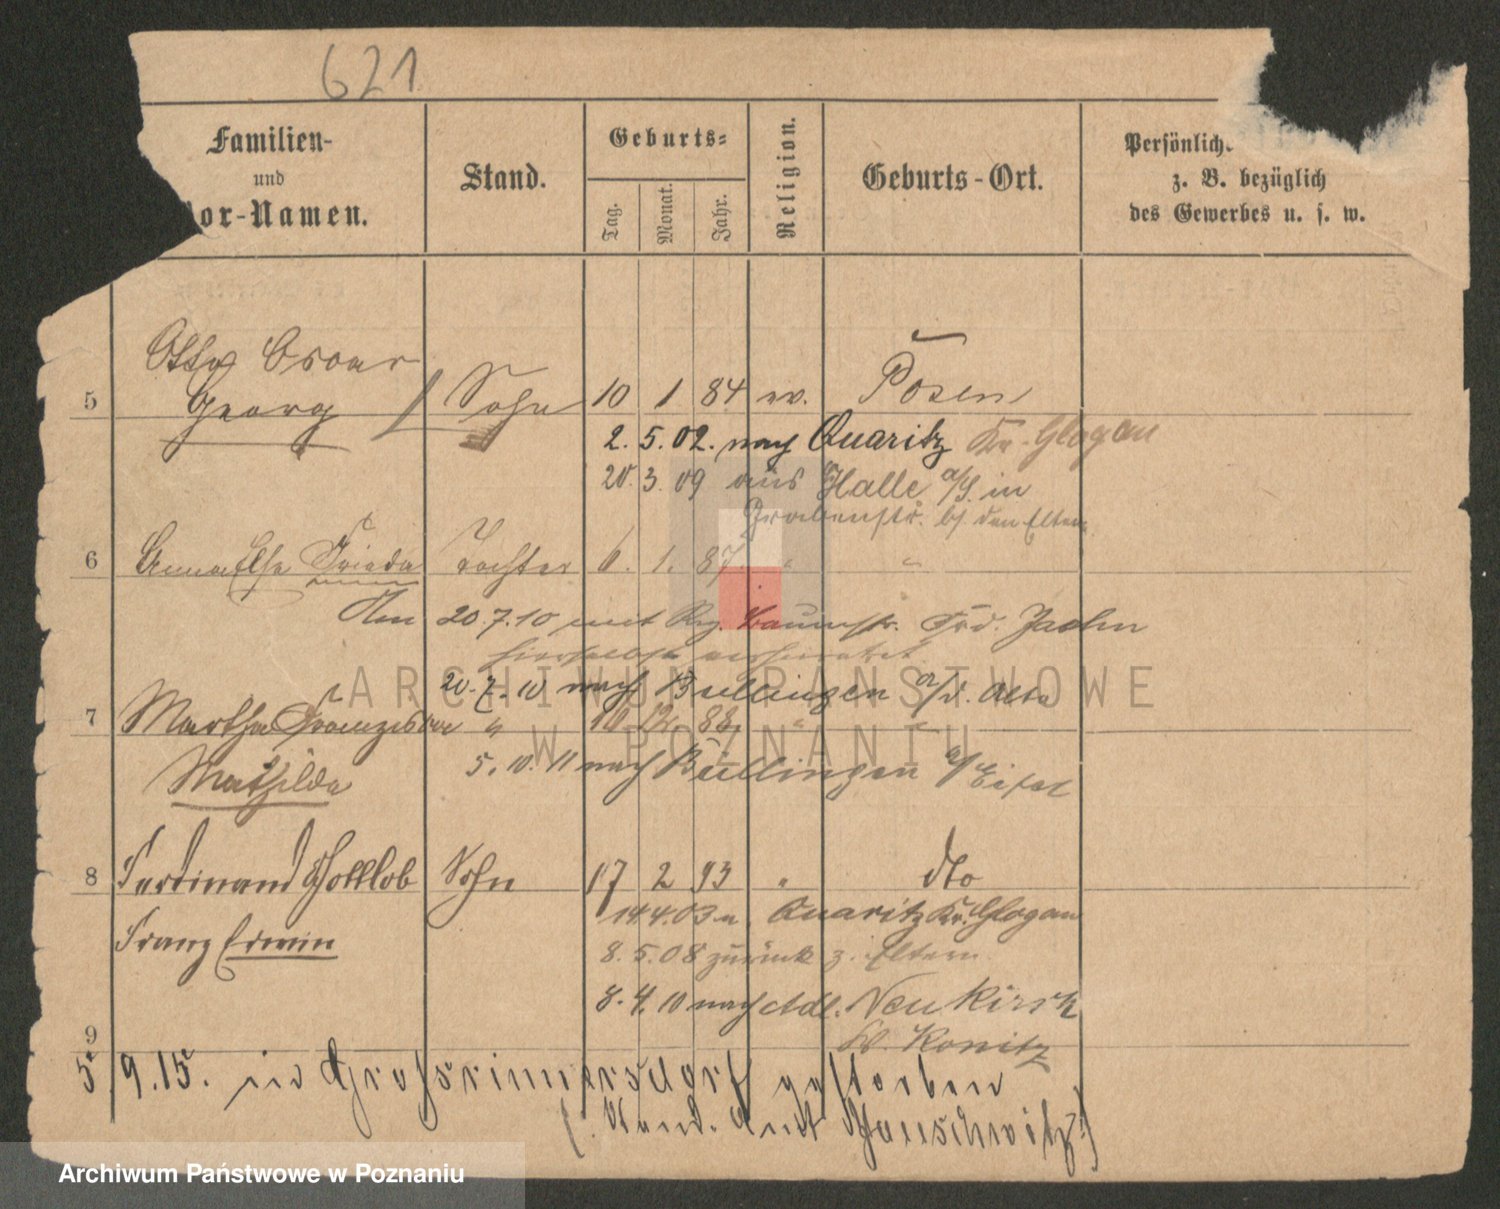 621
Familien-
und
Vor-Namen.
Stand.
Geburts-
Tag.
Monat.
Jahr.
Religion.
Geburts-Ort.
Persönlich
z. B. bezüglich
des Gewerbes u. s. w.
Otto Oscar
5 Georg Sohn 10 1 84 ev. Posen
2. 5. 02. nach Quaritz Kr. Glogau
20. 3. 09 aus Halle a/S. in
Grabenstr. b/ den Eltern
6 Anna Else Frieda Tochter 6. 1. 87 " "
Am 20.7.10 mit Reg. Baumstr. Frd. Jachn
hierselbst verheiratet
20. 7. 10 nach Bullingen a/d.
7 Martha Franziska " 10 12 88 " "
Mathilde
5. 10. 11 nach Büllingen a/ Eifel
8 Ferdinand Gottlob Sohn 17 2 93 " dto
14.4.03 n. Quaritz Kr. Glogau
Franz Erwin
8. 5. 08 zurück z. Eltern
8. 4. 10 nach Adl. Neukirch
Kr. Konitz
9
5. 9. 15. in gestorben
(: Stand. Amt :)
ARCHIWUM PAŃSTWOWE
W POZNANIU
Archiwum Państwowe w Poznaniu